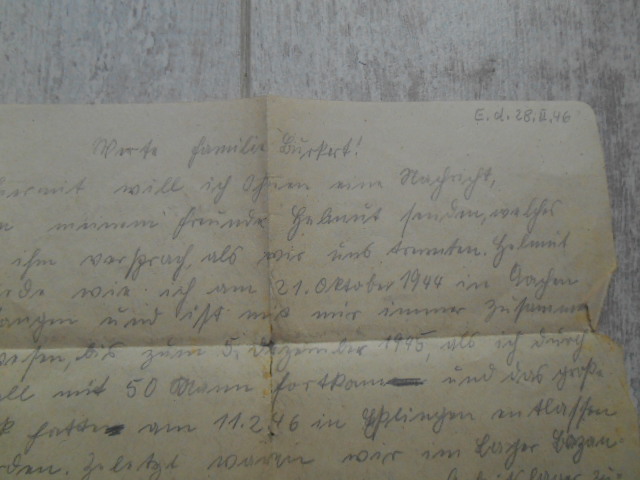 E. d. 28.II.46
Werte Familie Burkert!
hiermit will ich Ihnen eine Nachricht,
meinem Freunde Helmut senden, welches
ihm versprach, als wir uns trennten. Helmut
wie ich am 21. Oktober 1944 in Aachen
angen und ist mit mir immer zusammen
wesen, bis zum 5. Dezember 1945, als ich durch
all mit 50 Mann fortkam und das große
k hatte am 11.2.46 in Eßlingen entlassen
rden. Zuletzt waren wir im Lager Bazan-